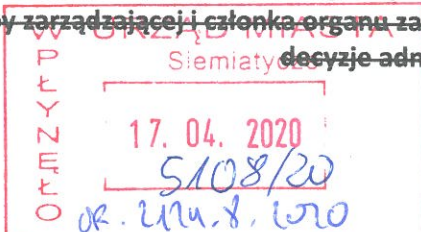 y zarządzającej i członka organu za
decyzje adm
WPŁYNĘŁO
URZĄD MIASTA
Siemiatycze
17. 04. 2020
5108/20
OR. 2124.8.2020